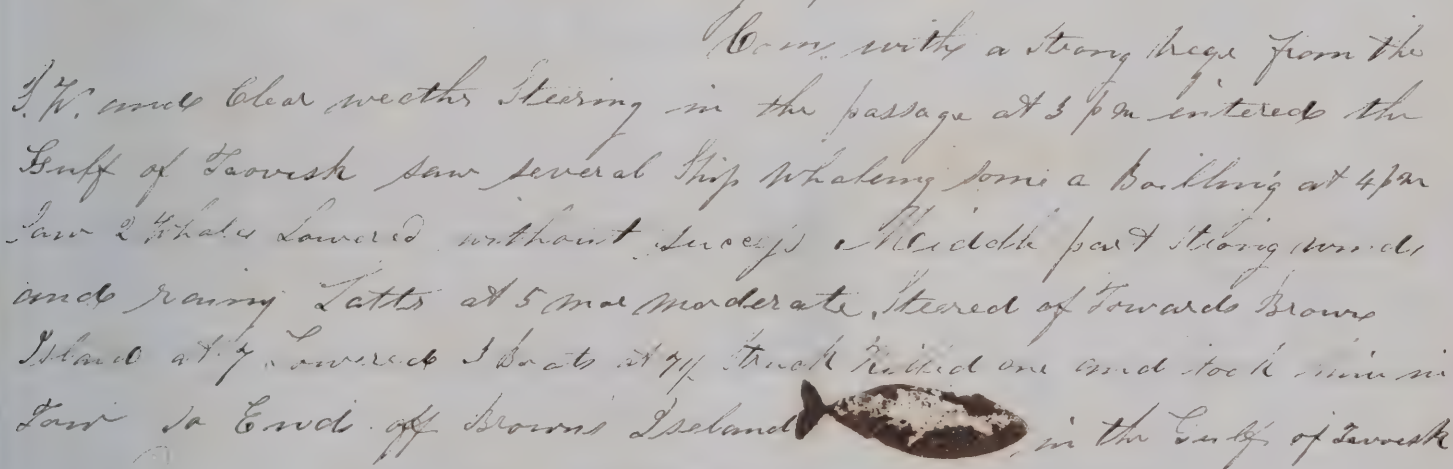 Coms with a strong breze from the
S.W. and Clear weathr Steering in the passage at 3 pm entered the
Gulf of Taovisk saw several Ship Whaleing some a Boilling at 4 pm
Saw 2 Whales Lowered without sucess Middle part strong winds
and rainy Lattr at 5 mor moderate Steered of Towards Browns
Island at 7 Lowered 3 Boats at 7½ Struck Killed one and took him in
Tow So Ends off Browns Iseland in the Gulf of Tavoisk